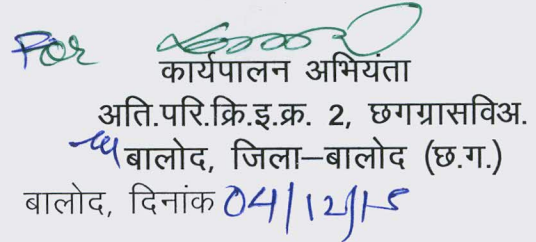 For
कार्यपालन अभियंता
अति.परि.क्रि.इ.क्र. 2, छगग्रासविअ.
बालोद, जिला–बालोद (छ.ग.)
बालोद, दिनांक 04/12/15